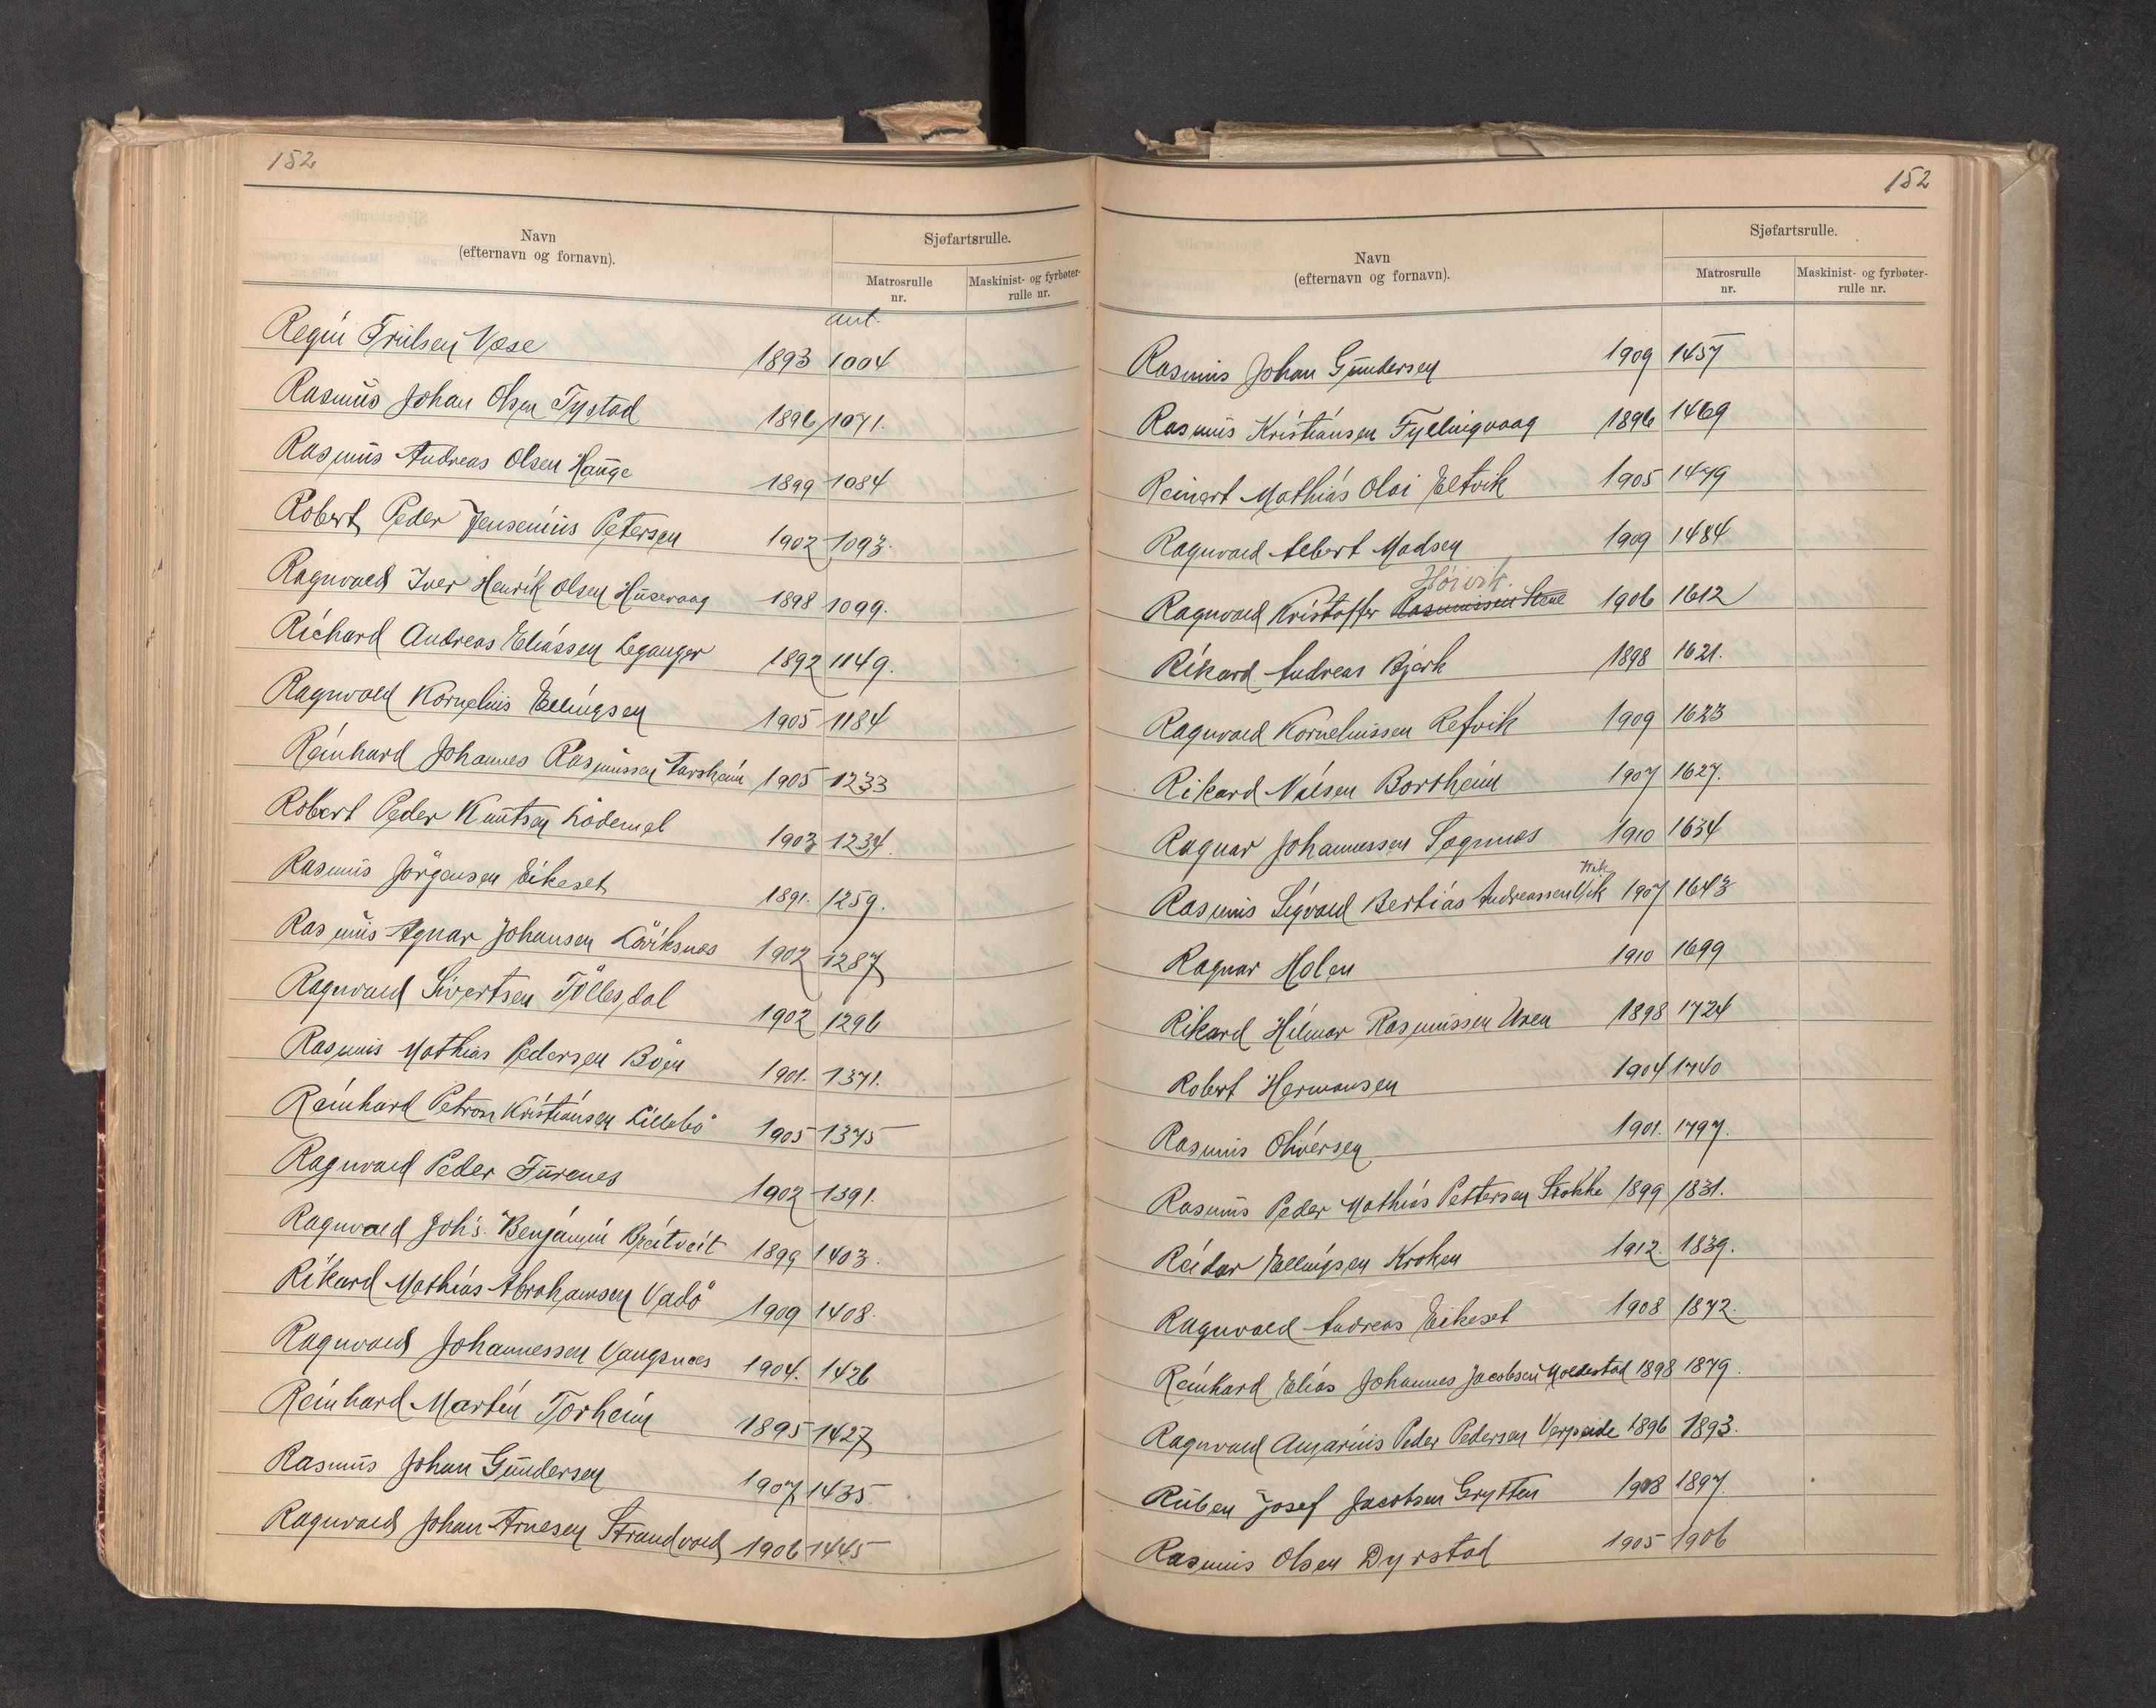 152
Navn
(efternavn og fornavn).
Sjøfartsrulle.
Matrosrulle
nr.
Maskinist- og fyrbøter-
rulle nr.
ant.
Regin Frilsen Vose 1893 1004
Rasmus Johan Olsen Tystad 1896 1071.
Rasmus Andreas Olsen Hauge 1899 1084
Robert Peder Jensenius Petersen 1902 1093.
Ragnvald Iver Henrik Olsen Husevaag 1898 1099.
Richard Andreas Eliassen Leganger 1892 1149.
Ragnvald Kornelius Ellingsen 1905 1184
Reinhard Johannes Rasmussen Tarsheim 1905 1233
Robert Peder Knutsen Lødemel 1903 1234.
Rasmus Jörgensen Eikeset 1891. 1259.
Rasmus Agnar Johansen Löviksnes 1902 1287
Ragnvald Sivertsen Töllesdal 1902 1296
Rasmus Mathias Pedersen Böen 1901. 1371.
Reinhard Petron Kristiansen Lillebö 1905 1375
Ragnvald Peder Furenes 1902 1391.
Ragnvald Joh's. Benjamin Breitveit 1899 1403.
Rikard Mathias Abrahamsen Vadö 1909 1408.
Ragnvald Johannessen Vangsnes 1904. 1426
Reinhard Martin Torheim 1895 1427
Rasmus Johan Gundersen 1907 1435
Ragnvald Johan Arnesen Strandvold 1906 1445
152
Navn
(efternavn og fornavn).
Sjøfartsrulle.
Matrosrulle
nr.
Maskinist- og fyrbøter-
rulle nr.
Rasmus Johan Gundersen 1909 1457
Rasmus Kristiansen Fyllingvaag 1896 1469
Reinert Mathias Olai Eltvik 1905 1479
Ragnvald Albert Madsen 1909 1484
Hövik.
Ragnvald Kristoffer Rasmussen Stene 1906 1612
Rikard Andreas Bjørk 1898 1621.
Ragnvald Korneliussen Refvik 1909 1623
Rikard Nilsen Bortheim 1907 1627.
Ragnar Johannessen Sognnes 1910 1634
Vik
Rasmus Sigvald Bertias Andreassen Vik 1907 1643
Ragnar Holen 1910 1699
Rikard Hilmar Rasmussen Uren 1898 1724
Robert Hermansen 1904 1740
Rasmus Oliversen 1901. 1797.
Rasmus Peder Mathias Pettersen Stokke 1899 1831.
Reidar Ellingsen Kroken 1912. 1839.
Ragnvald Andreas Eikeset 1908 1872.
Reinhard Elias Johannes Jacobsen Moldestad 1898 1879.
Ragnvald Angarius Peder Pedersen Verpeide 1896 1893.
Ruben Josef Jacobsen Grytten 1908 1897.
Rasmus Olsen Dyrstad 1905 1906